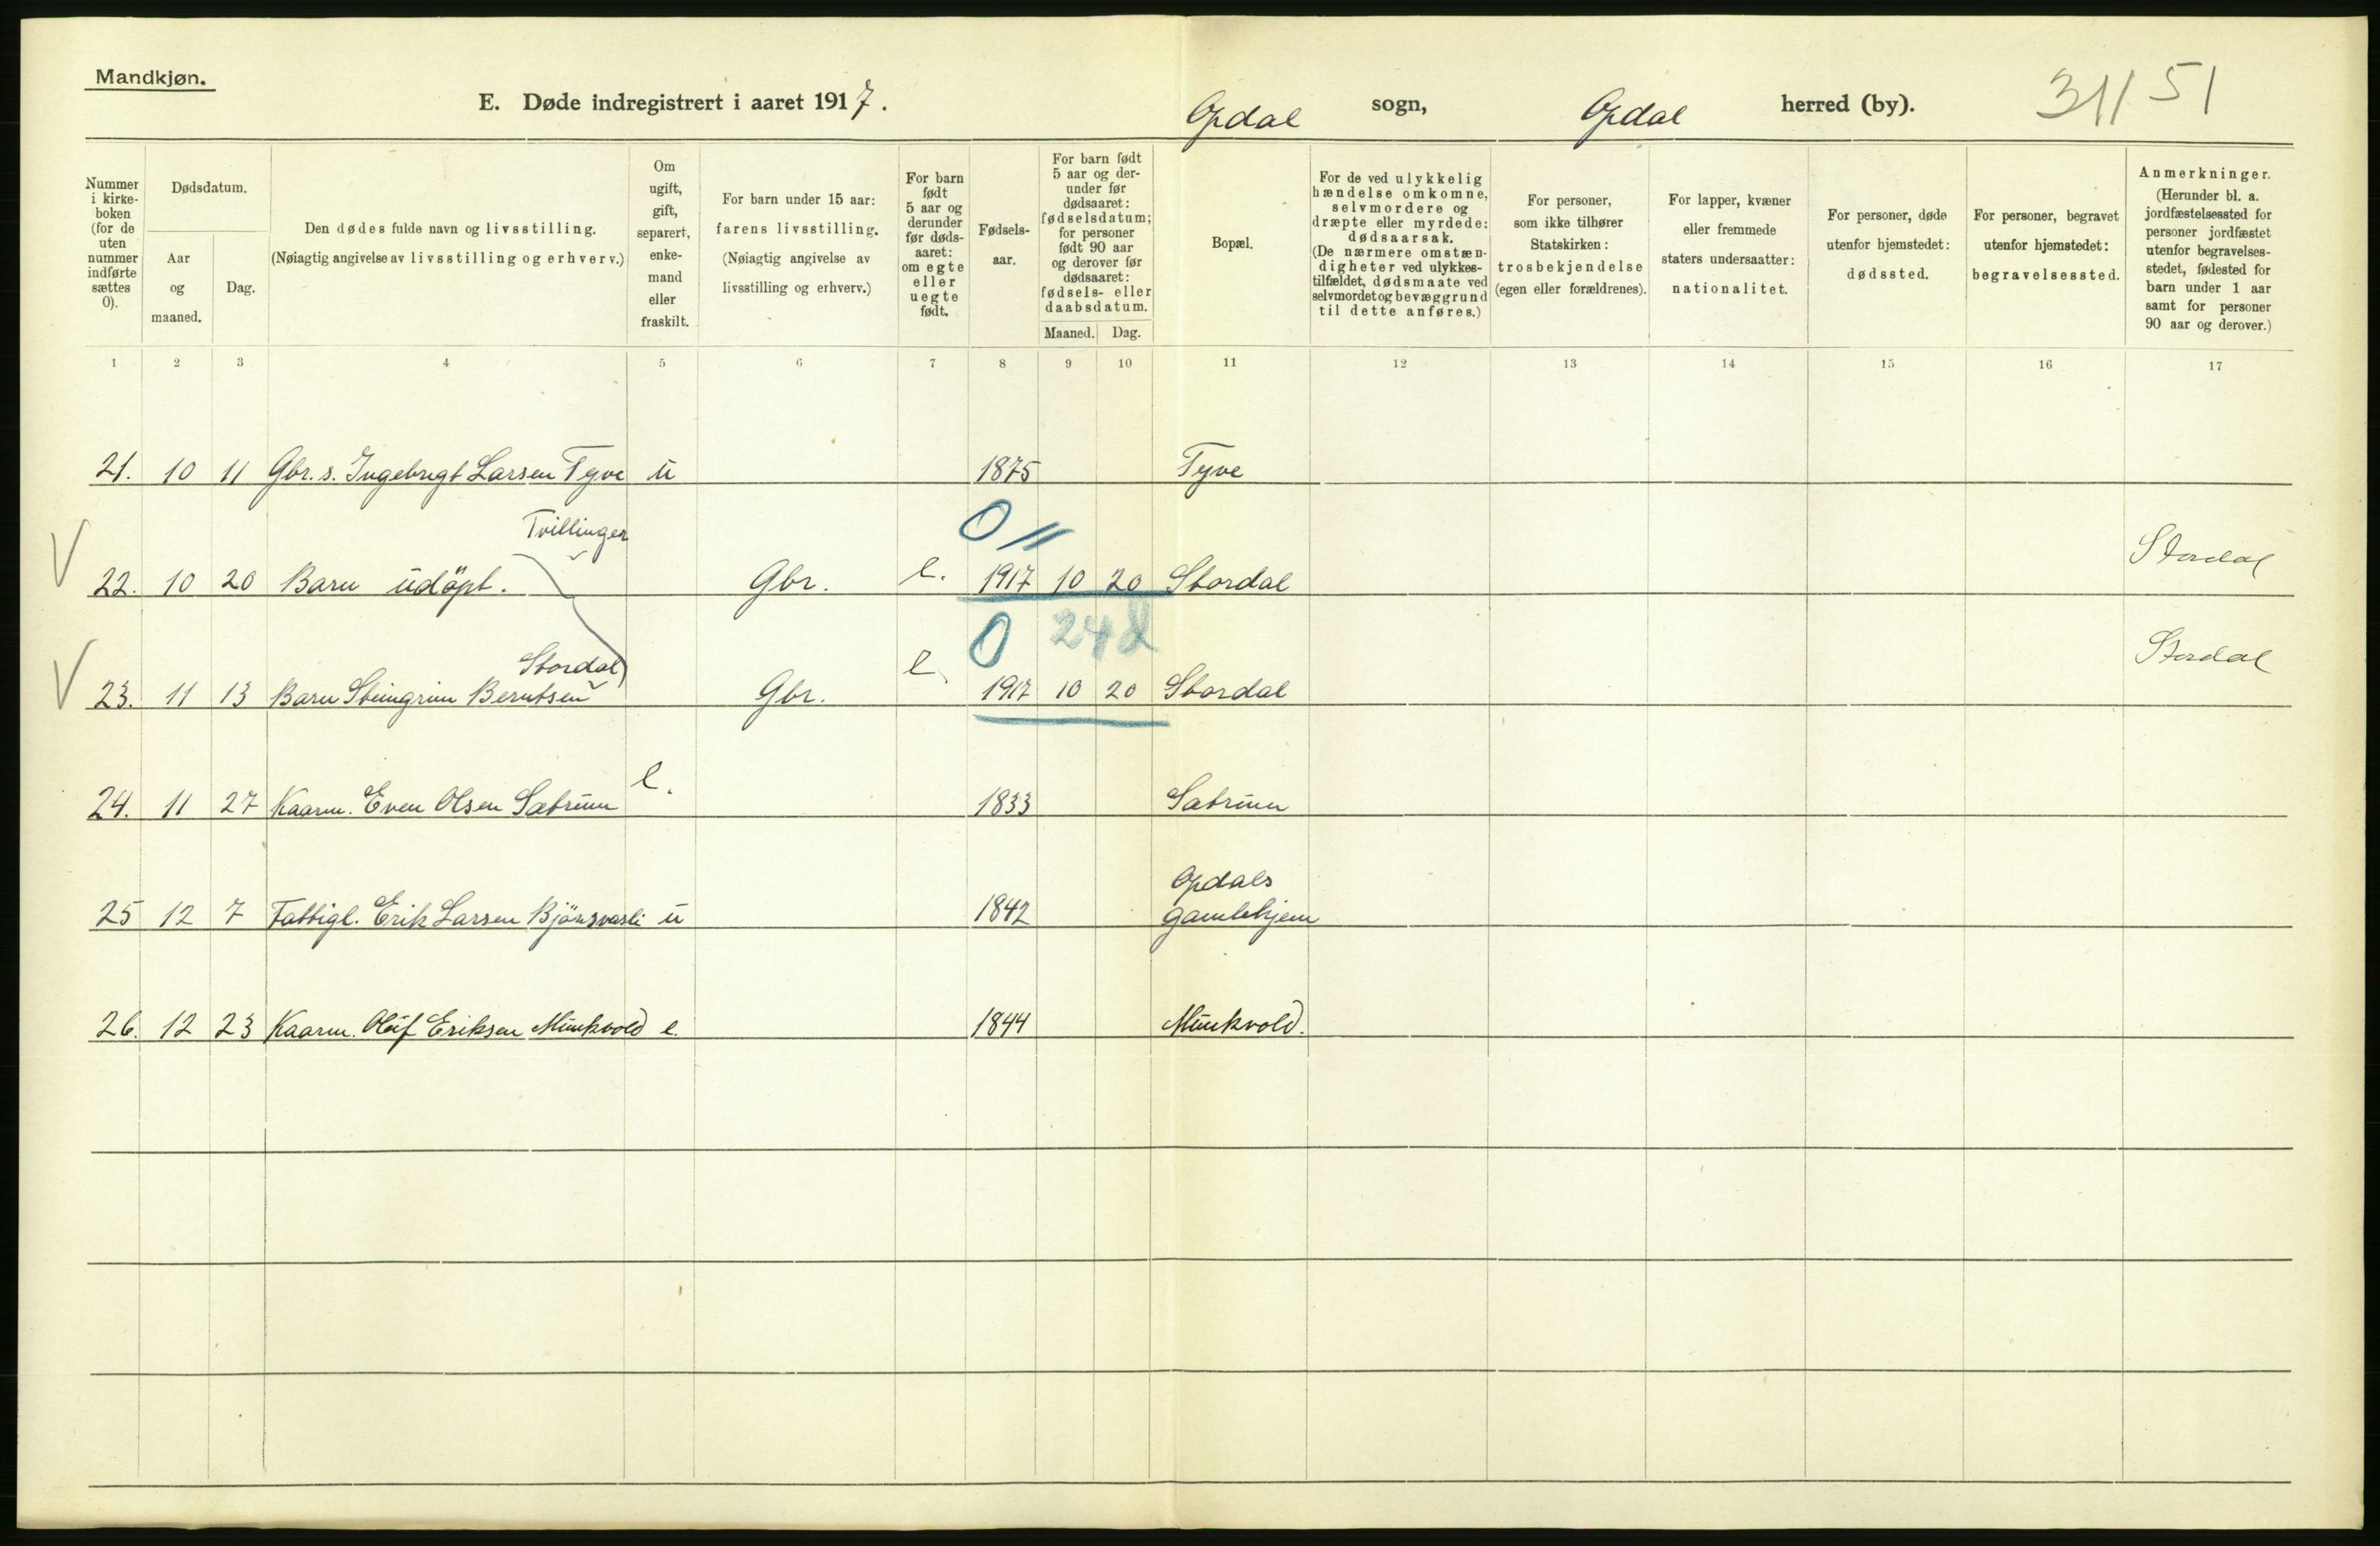 Mandkjøn.
E. Døde indregistrert i aaret 1917. Opdal sogn, Opdal herred (by). 311 51
Nummer i kirke-boken (for de uten nummer indførte sættes 0).
Dødsdatum.
Aar og maaned.
Dag.
Den dødes fulde navn og livsstilling.
(Nøiagtig angivelse av livsstilling og erhverv.)
Om ugift, gift, separert, enke-mand eller fraskilt.
For barn under 15 aar:
farens livsstilling.
(Nøiagtig angivelse av
livsstilling og erhverv.)
For barn født 5 aar og derunder før døds-aaret: om egte eller uegte født.
Fødsels-aar.
For barn født 5 aar og der-under før dødsaaret: fødselsdatum; for personer født 90 aar og derover før dødsaaret: fødsels- eller daabsdatum.
Maaned. Dag.
Bopæl.
For de ved ulykkelig hændelse omkomne, selvmordere og dræpte eller myrdede: dødsaarsak.
(De nærmere omstæn-digheter ved ulykkes-tilfældet, dødsmaate ved selvmordet og bevæggrund til dette anføres.)
For personer, som ikke tilhører Statskirken: trosbekjendelse (egen eller forældrenes).
For lapper, kvæner eller fremmede staters undersaatter: nationalitet.
For personer, døde utenfor hjemstedet: dødssted.
For personer, begravet utenfor hjemstedet: begravelsessted.
Anmerkninger.
(Herunder bl. a. jordfæstelsessted for personer jordfæstet utenfor begravelses-stedet, fødested for barn under 1 aar samt for personer 90 aar og derover.)
1 2 3 4 5 6 7 8 9 10 11 12 13 14 15 16 17
21. 10 11 Gbr. s. Ingebrigt Larsen Tyve u 1875 Tyve
Tvillinger 0 11
V 22. 10 20 Barn udöpt. Gbr. e. 1917 10 20 Stordal Stordal
0 24 d
Stordal
V 23. 11 13 Barn Steingrim Berntsen Gbr. e. 1917 10 20 Stordal Stordal
24. 11 27 Kaarm. Even Olsen Sætrum e. 1833 Sætrum
Opdals
25 12 7 Fattigl. Erik Larsen u 1842 gamlehjem
26. 12 23 Kaarm. Oluf Eriksen Munkvold e. 1844 Munkvold.